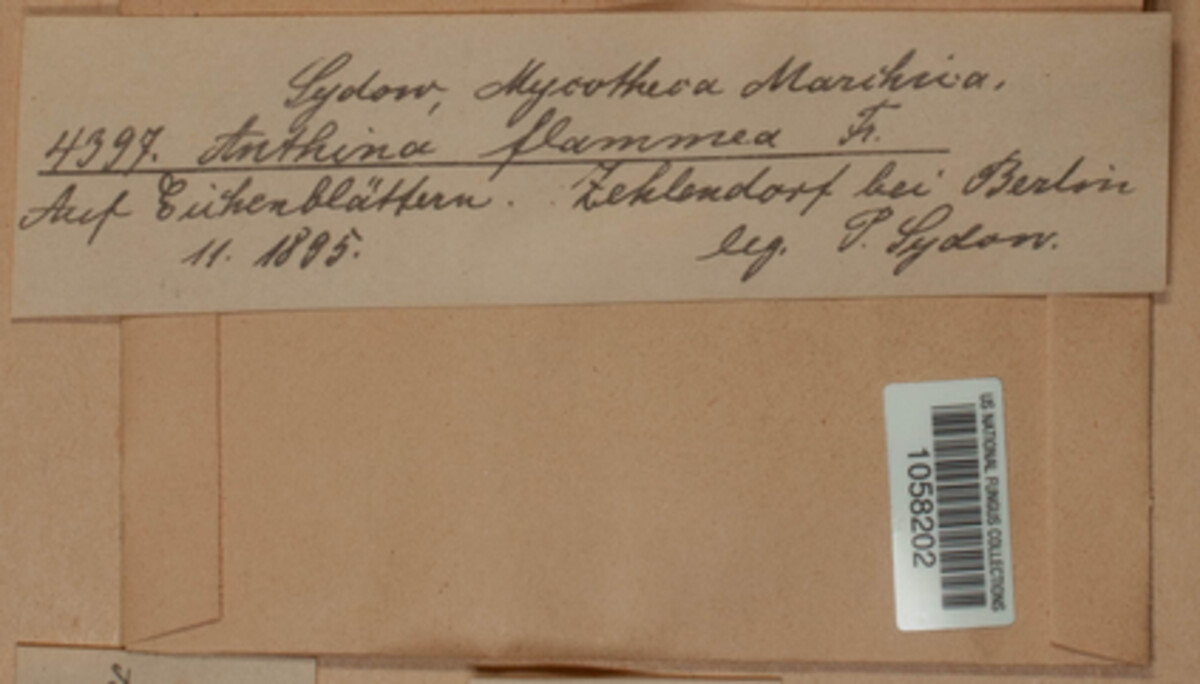 Sydow, Mycotheca Marchica.
4397. Anthina flammea Fr.
Auf Eichenblättern. Zehlendorf bei Berlin
11. 1895. leg. P. Sydow.
US NATIONAL FUNGUS COLLECTIONS
1058202